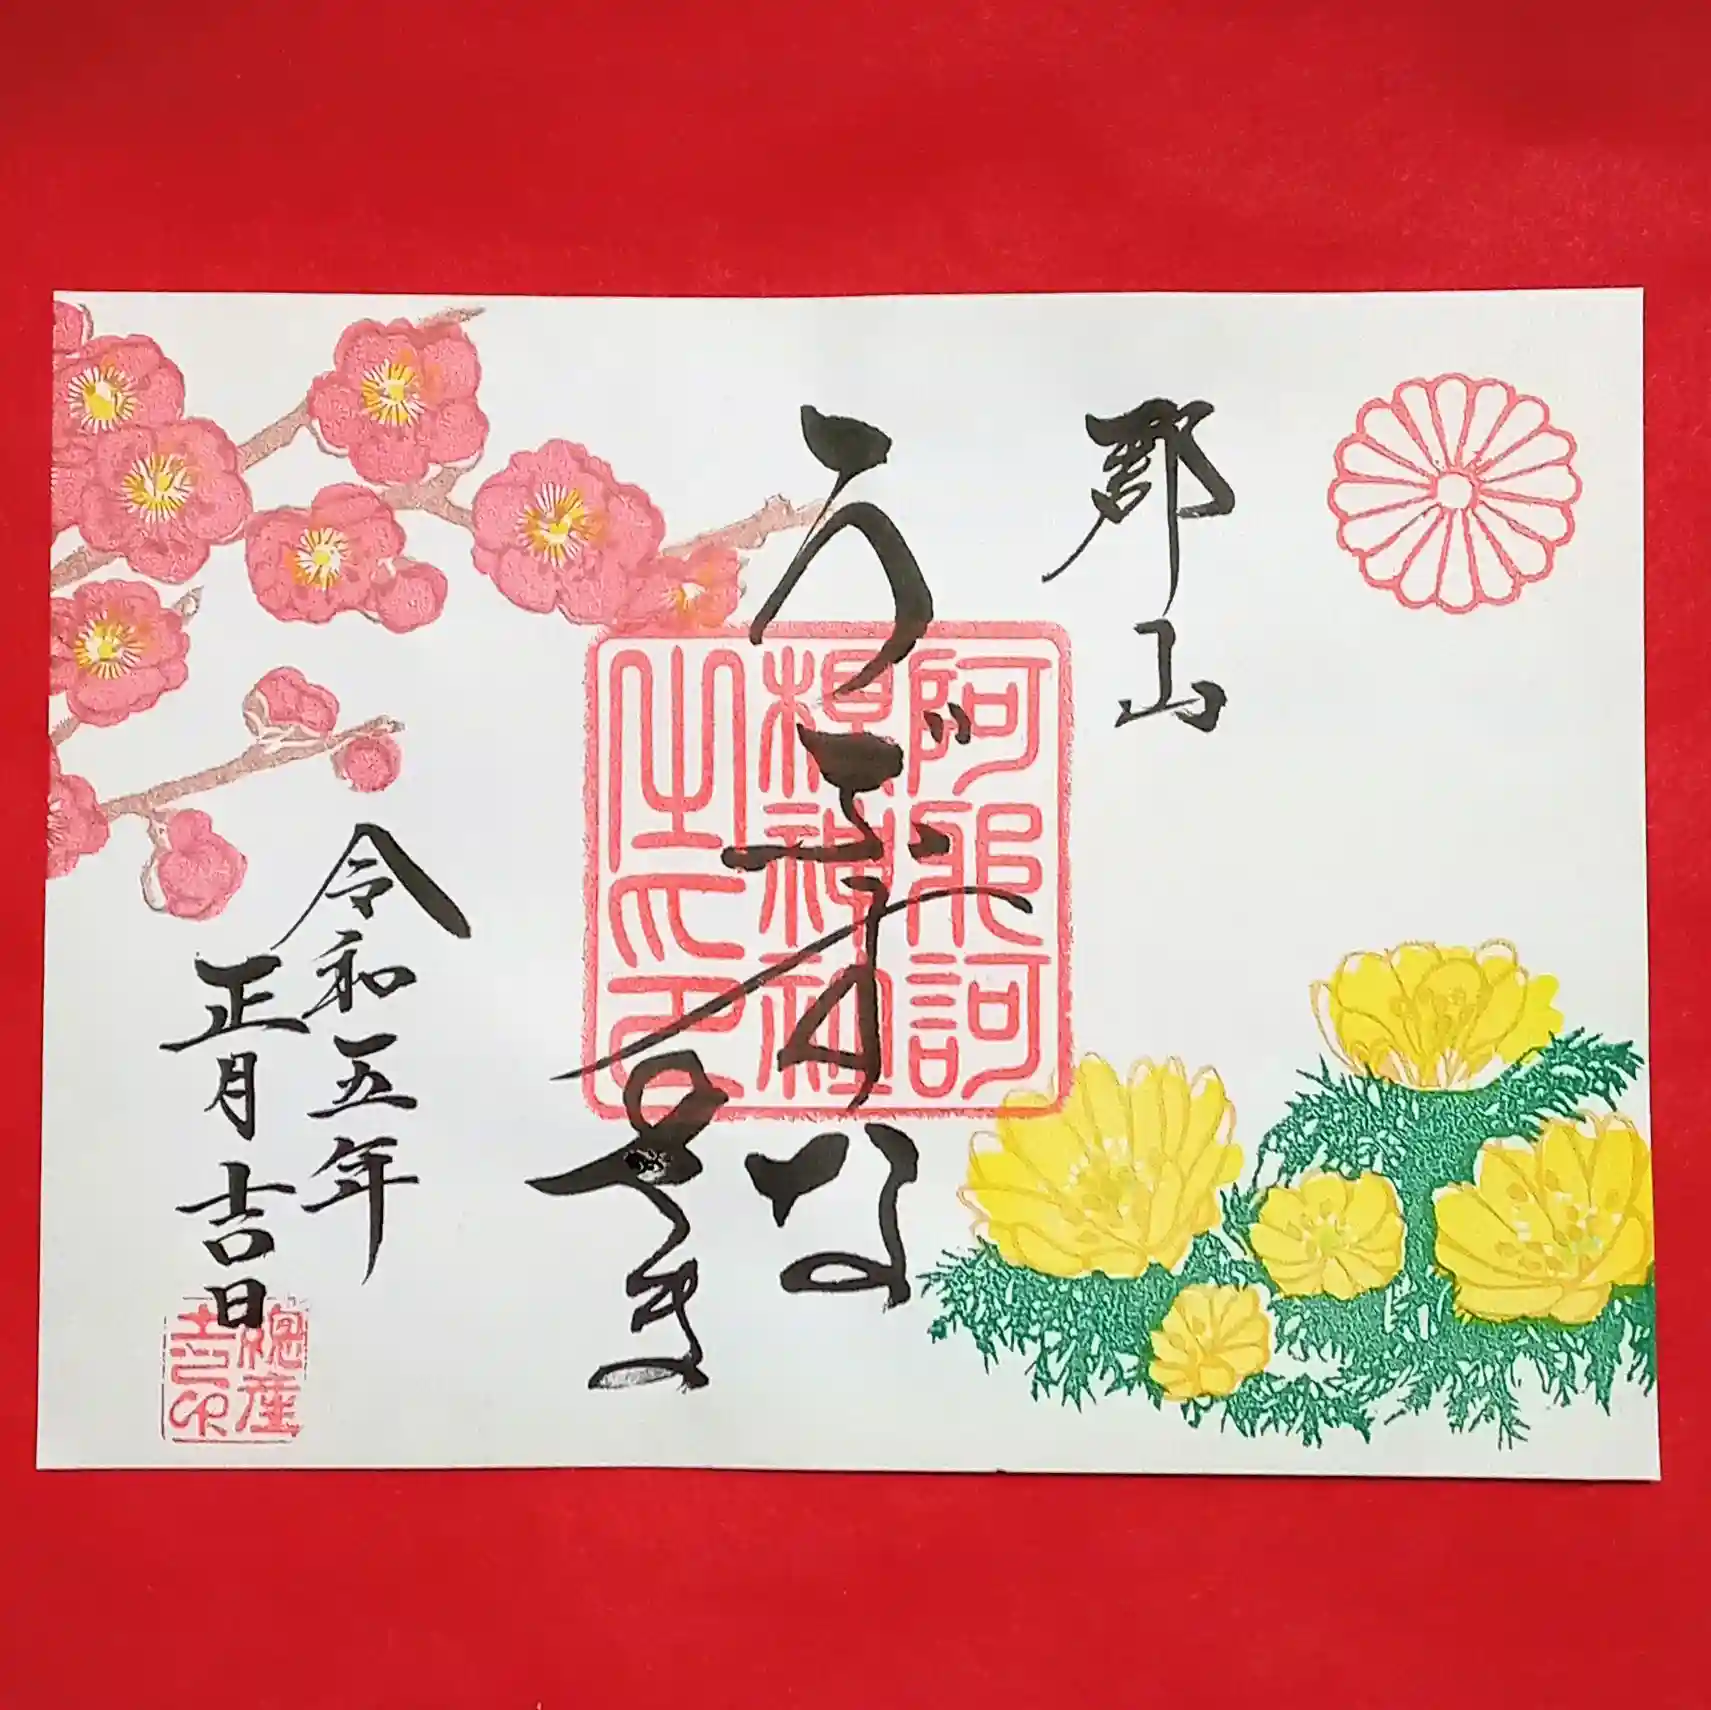 郡山
うぶすな
令和五年
正月吉日
阿邪訶
根神社
之印
總産
土之印